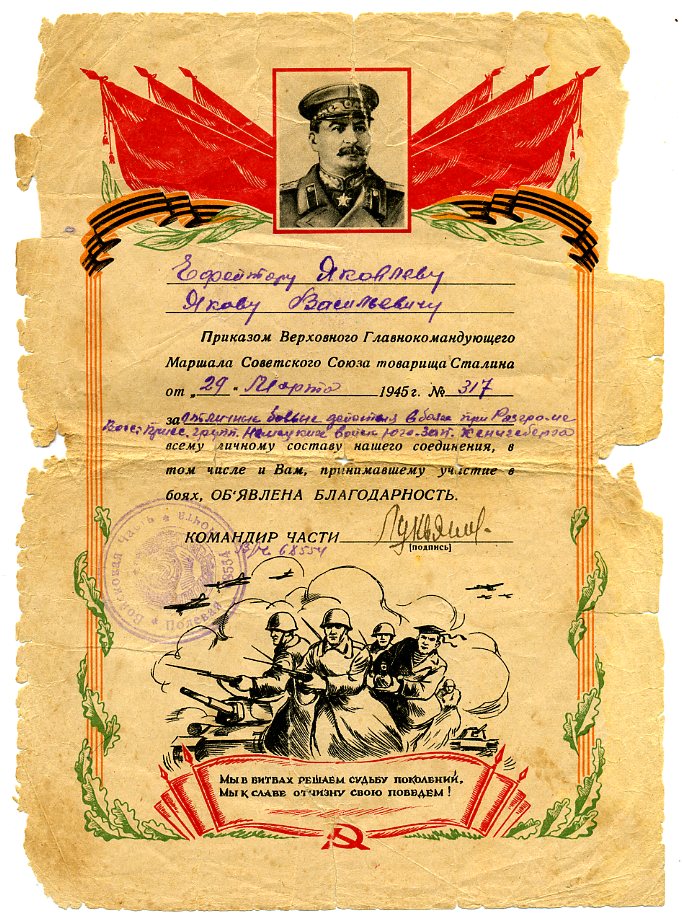 Ефрейтору Яковлеву
Якову Васильевичу
Приказом Верховного Главнокомандующего
Маршала Советского Союза товарища Сталина
от „29 " Марта 1945 г. № 317
за отличные боевые действия в боях при Разгроме
Вост. Прусс. групп. Немецких войск Юго. Зап. Кенигсберга
всему личному составу нашего соединения, в
том числе и Вам, принимавшему участие в
боях, ОБ‘ЯВЛЕНА БЛАГОДАРНОСТЬ.
КОМАНДИР ЧАСТИ
(подпись)
В/Ч 68554
Войсковая Часть * Полевая Почта *
МЫ В БИТВАХ РЕШАЕМ СУДЬБУ ПОКОЛЕНИЙ,
МЫ К СЛАВЕ ОТЧИЗНУ СВОЮ ПОВЕДЕМ !